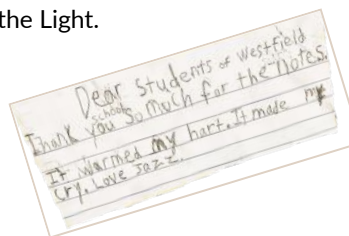 the Light.
Dear Students of Westfield
school
Thank you So much for the notes.
It warmed my hart. It made my
cry. Love Jazz.